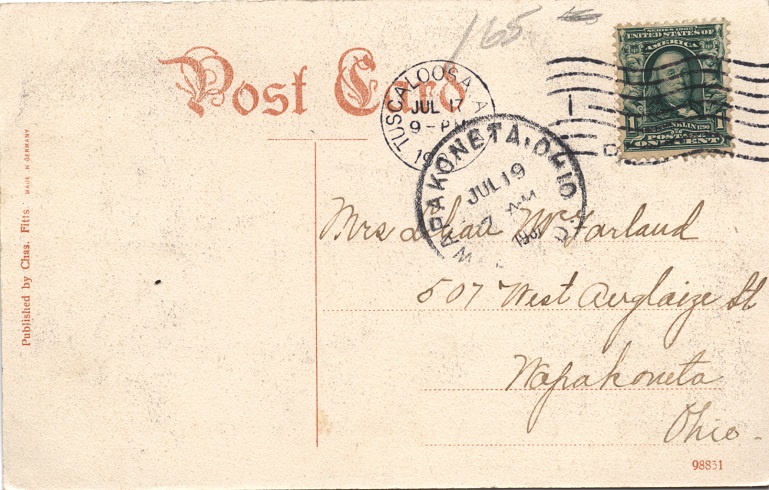 165
Post Card
TUSCALOOSA A
JUL 17
9 - PM
19
WAPAKONETA, OHIO
JUL 19
7 AM
1907
SERIES 1902
UNITED STATES OF
AMERICA
1 1
POSTAGE
ONE CENT
Mrs McFarland
507 West Auglaize St
Wapakoneta
Ohio -
Published by Chas. Fitts. MADE IN GERMANY
98831